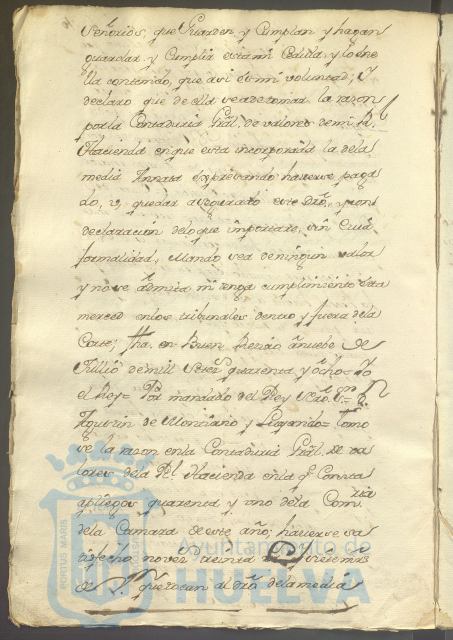 Señorios, que Guarden, y Cumplan y hagan
guardar, y Cumplir esta mi Cedula, y lo en e
lla contenido, que asi es mi voluntad; Y
declaro que de ella se ha de tomar la razon
por la Contaduria Gral. de valores de mi Rl.
Hacienda en que esta incorporada la dela
media Annata expresando haverse paga
do, o, quedar asegurado este Dro., y con
declaracion delo que importare, sin cuia
formalidad, Mando sea de ningun valor
y no se admita ni tenga cumplimiento esta
merced en los tribunales dentro y fuera dela
Corte; fha. en Buen Retiro a nuebe de
Jullio de mill setes. quarenta y ocho = Yo
el Rey = Por mandado del Rey nro. Sr. = Dn.
Agustin de Montiano y Luyando = Tomo
se la razon en la Contaduria Gral. de va
lores dela Rl. Hacienda en la qe. Consta
a pliegos quarenta y uno dela Comria.
dela Camara de este año; haverse sa
tisfecho
que tocan al dro. dela media
PORTUS MARIS
Ayuntamiento de
HUELVA